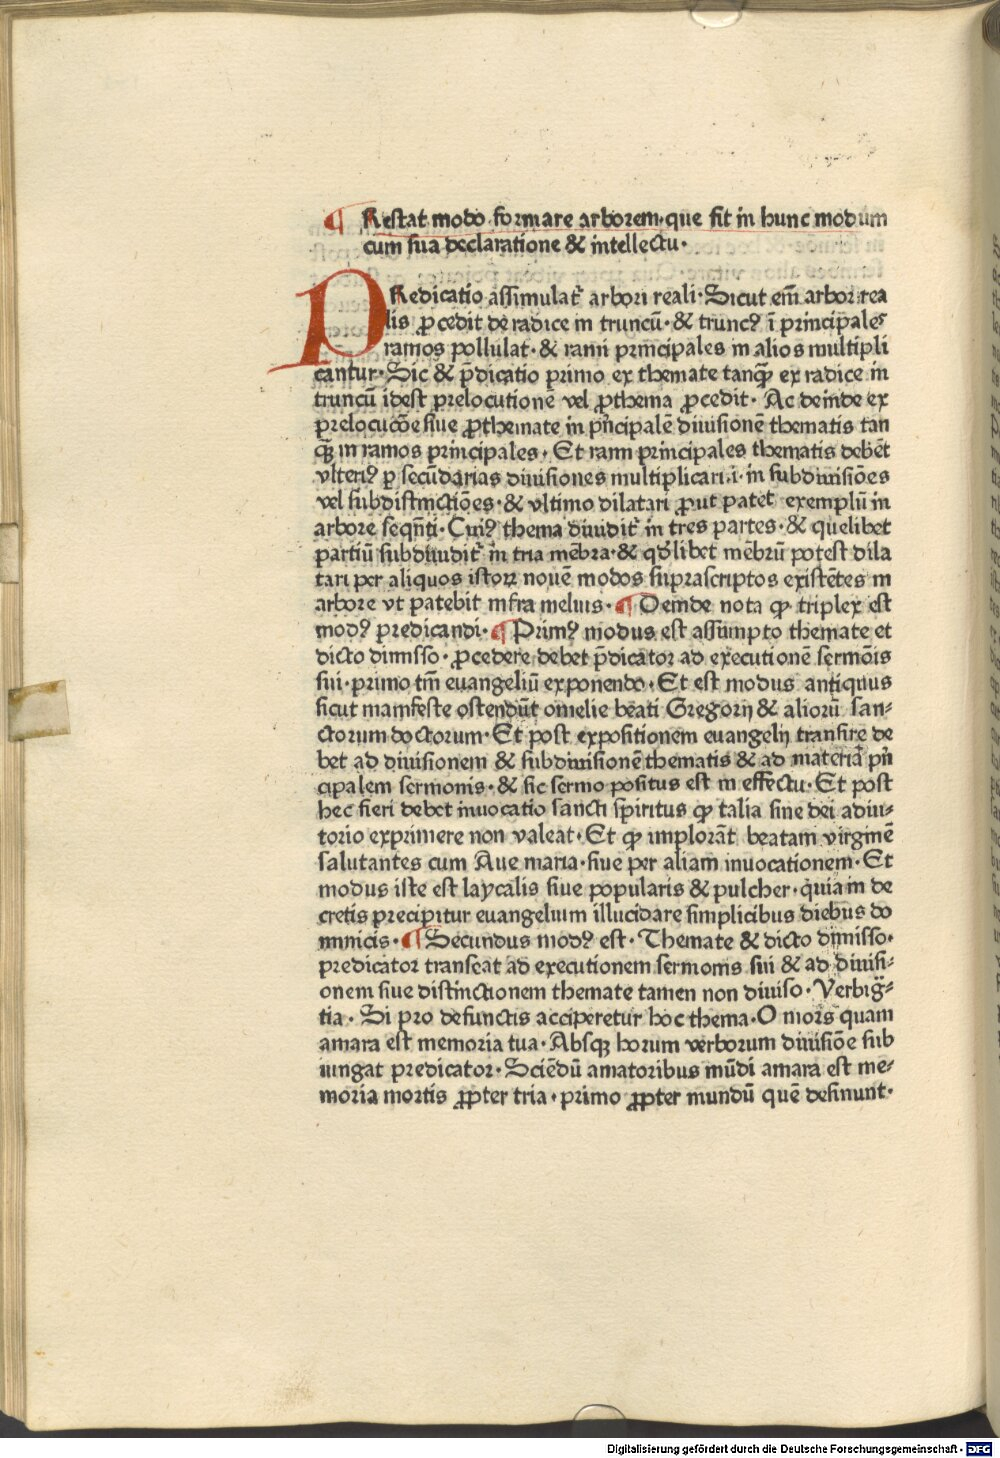 ¶ Restat modo formare arborem·que fit in hunc modum
cum sua declaratione & intellectu·
PRedicatio assimulat᷑ arbori reali·Sicut em̄ arbor rea
lis ꝓcedit de radice in truncū·& truncꝰ ī principales
ramos pollulat·& rami principales in alios multipli
cantur·Sic & p̄dicatio primo ex themate tanqꝫ ex radice in
truncū idest prelocutionē vel ꝓthema ꝓcedit· Ac deinde ex
prelocucōe siue ꝓthemate in pn̄cipalē diuisionē thematis tan
qꝫ in ramos principales· Et rami principales thematis debēt
vlteriꝰ ꝑ secūdarias diuisiones multiplicari·i· in subdiuisiōes
vel subdistinctiōes·& vltimo dilatari ꝓut patet exemplū in
arbore seqn̄ti·Cuiꝰ thema diuidit᷑ in tres partes·& quelibet
partiū subdiuidit᷑ in tria mēbra·& qd̓libet mēbrū potest dila
tari per aliquos istoꝝ nouē modos suprascriptos existētes in
arbore vt patebit infra melius· ¶ Deinde nota ꝙ triplex est
modꝰ predicandi· ¶ Primꝰ modus est assumpto themate et
dicto dimisso· ꝓcedere debet p̄dicator ad executionē sermōis
sui·primo tm̄ euangeliū exponendo·Et est modus antiquus
sicut manifeste ostendūt omelie beati Gregorij & aliorū san-
ctorum doctorum·Et post expositionem euangelij transire de
bet ad diuisionem & subdiuisionē thematis & ad materiā pn̄
cipalem sermonis·& sic sermo positus est in effectu·Et post
hec fieri debet inuocatio sancti spiritus ꝙ talia sine dei adiu-
torio exprimere non valeat·Et ꝙ implorāt beatam virginē
salutantes cum Aue maria·siue per aliam inuocationem·Et
modus iste est laycalis siue popularis & pulcher·quia in de
cretis precipitur euangelium illucidare simplicibus diebus do
minicis· ¶ Secundus modꝰ est· Themate & dicto dimisso·
predicator transeat ad executionem sermonis sui & ad diuisi-
onem siue distinctionem themate tamen non diuiso· Verbig̃-
tia· Si pro defunctis acciperetur hoc thema·O mors quam
amara est memoria tua·Absqꝫ horum verborum diuisiōe sub
iungat predicator·Sciēdū amatoribus mūdi amara est me-
moria mortis ꝓpter tria·primo ꝓpter mundū quē desinunt·
Digitalisierung gefördert durch die Deutsche Forschungsgemeinschaft - DFG